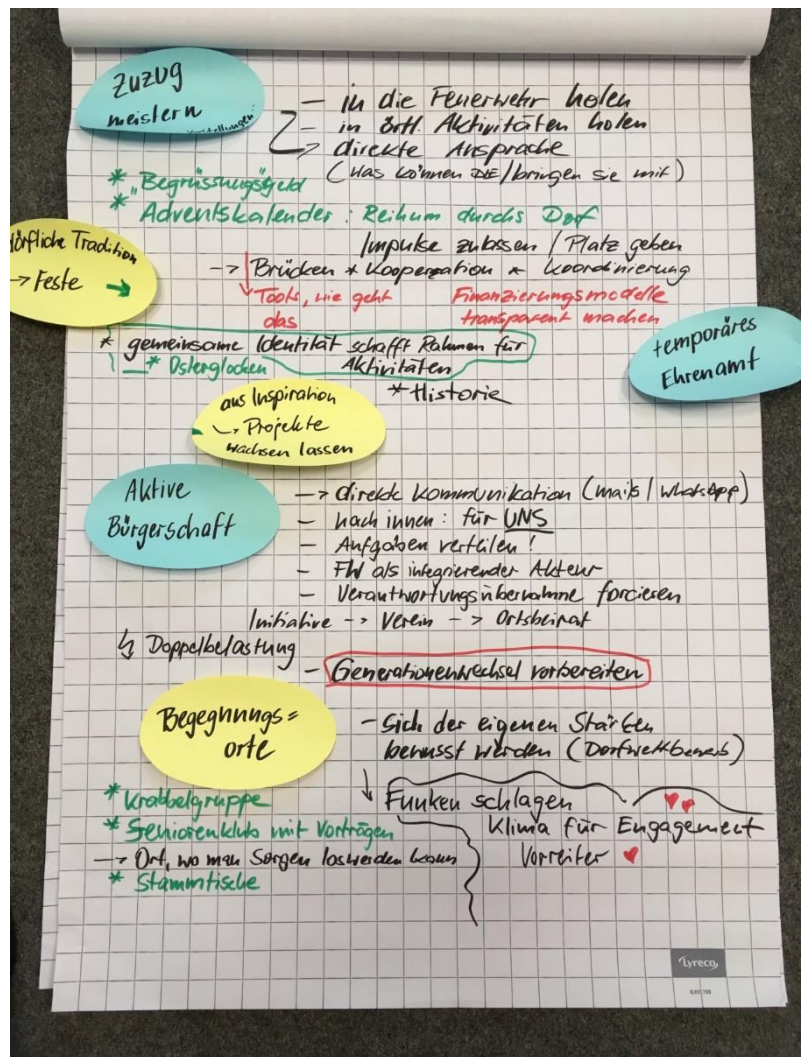 Zuzug
meistern
- in die Feuerwehr holen
- in örtl. Aktivitäten holen
→ direkte Ansprache
(Was können DIE / bringen sie mit)
* "Begrüssungsgeld
* Adventskalender : Reihum durchs Dorf
dörfliche Tradition
→ Feste →
Impulse zulassen / Platz geben
→ Brücken * Kooperation * Koordinierung
Tools, wie geht
das
Finanzierungsmodelle
transparent machen
* gemeinsame Identität schafft Rahmen für
Aktivitäten
* Osterglocken
* Historie
temporäres
Ehrenamt
aus Inspiration
→ Projekte
wachsen lassen
Aktive
Bürgerschaft
→ direkte Kommunikation (mails / WhatsApp)
- nach innen : für UNS
- Aufgaben verteilen !
- FW als integrierender Akteur
- Verantwortungsübernahme forcieren
Initiative -> Verein -> Ortsbeirat
↳ Doppelbelastung
- Generationenwechsel vorbereiten
Begegnungs=
orte
- Sich der eigenen Stärken
bewusst werden (Dorfwettbewerb)
↓ Funken schlagen
Klima für Engagement
Vorreiter ♥
* Krabbelgruppe
* Seniorenklub mit Vorträgen
→ Ort, wo man Sorgen loswerden kann
* Stammtische
Lyreco